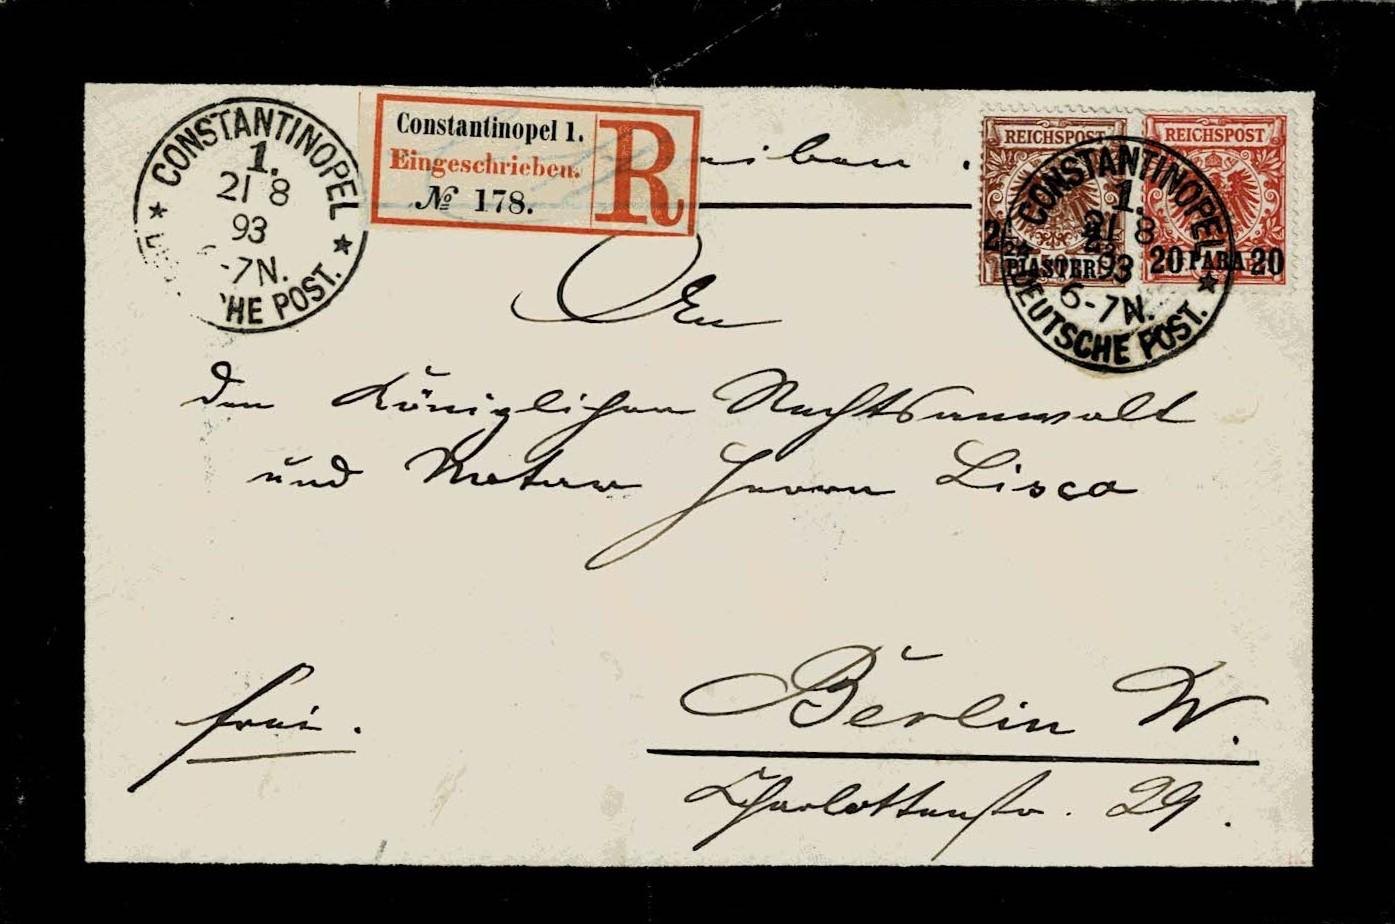 CONSTANTINOPEL
1.
21 8
93
-7N.
HE POST.
Constantinopel 1.
Eingeschrieben.
№ 178.
R
REICHSPOST
PIASTER
REICHSPOST
20 PARA 20
CONSTANTINOPEL
1.
21 8
93
6-7N.
DEUTSCHE POST.
An
den Königlichen Rechtsanwalt
und Notar Herrn Lisco
Berlin W.
frei.
Charlottenstr. 29.